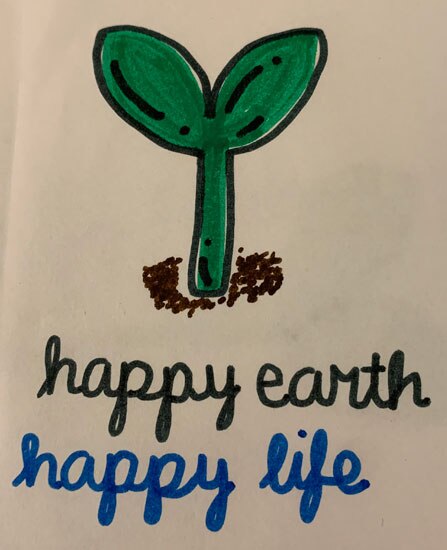 happy earth
happy life